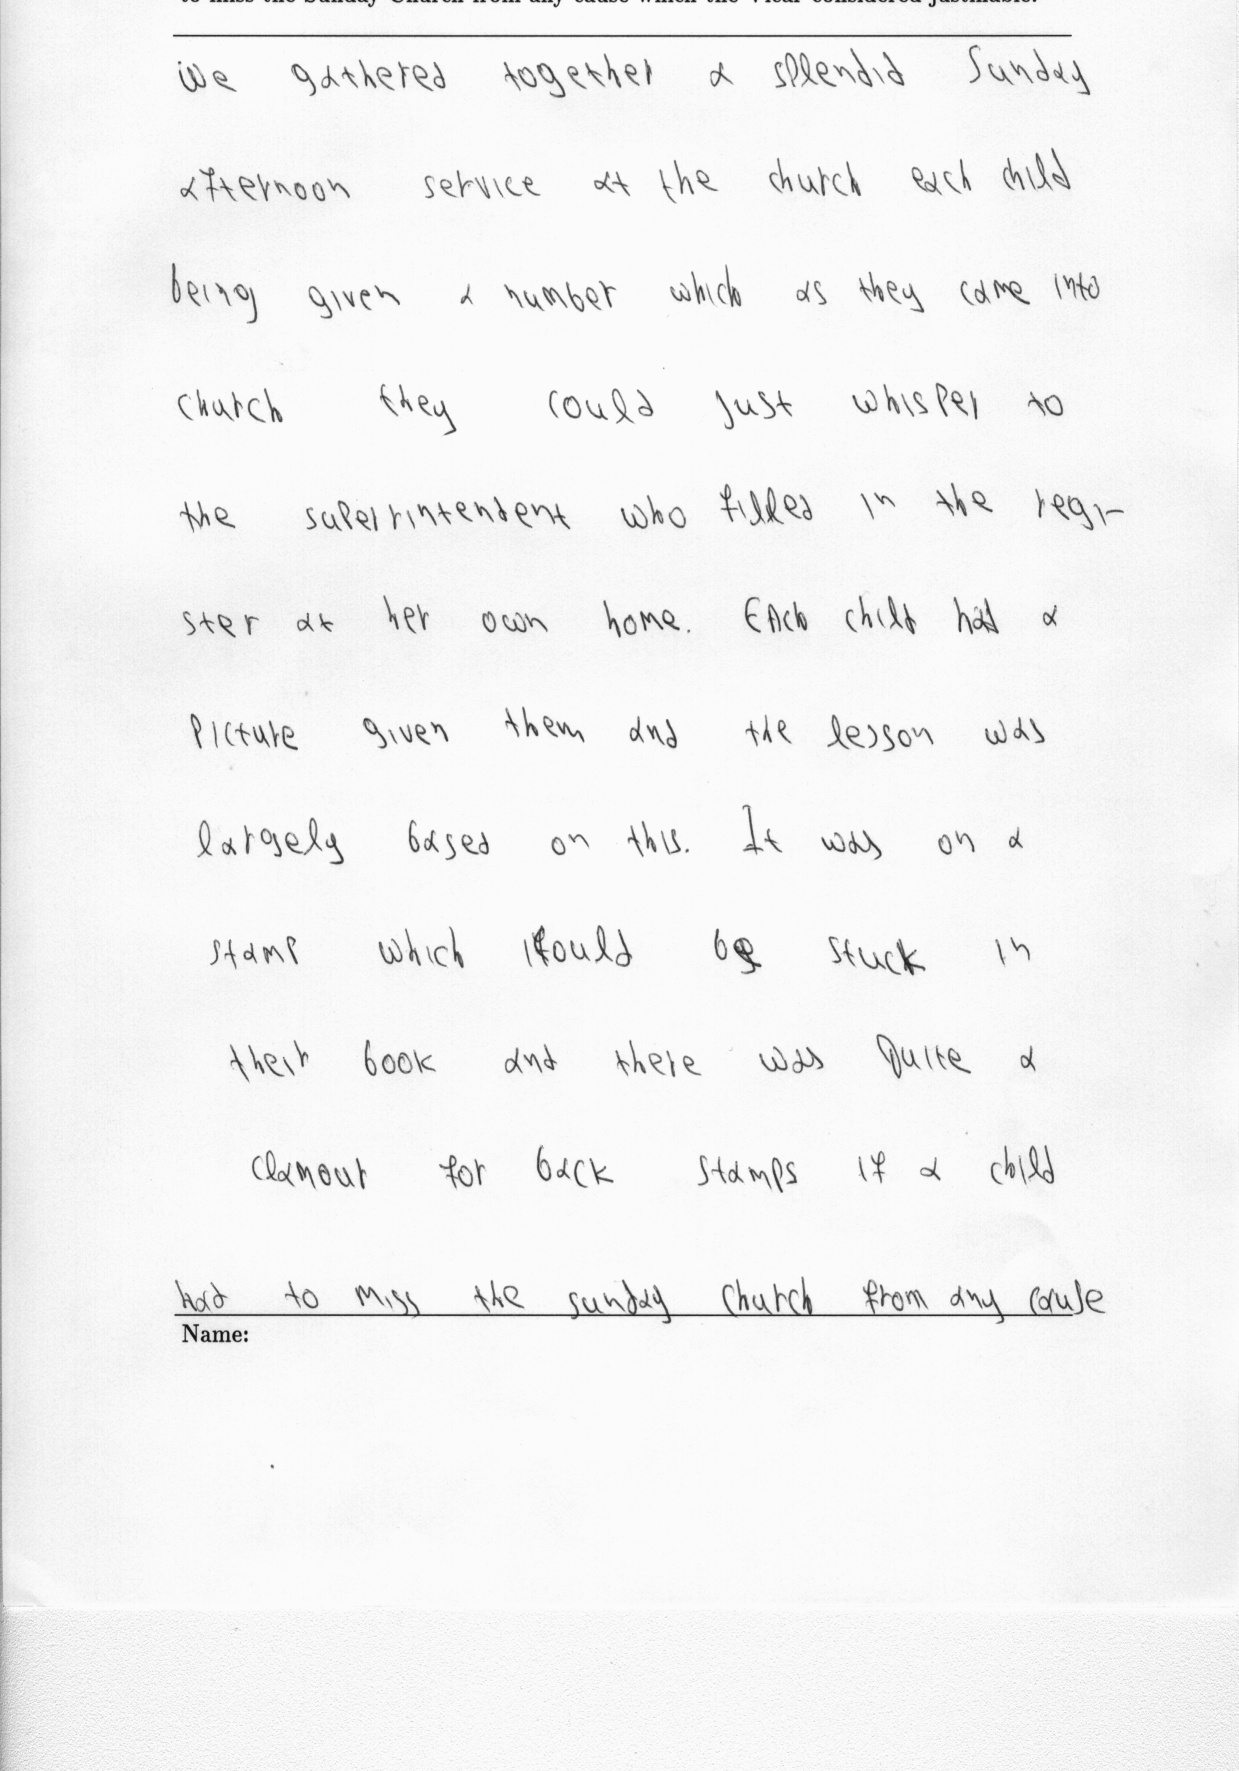 to miss the Sunday Church from any cause which the Vicar considered justifiable.
We gathered together a splendid Sunday
afternoon service at the church each child
being given a number which as they came into
church they could just whisper to
the superintendent who filled in the regi-
ster at her own home. Each child had a
picture given them and the lesson was
largely based on this. It was on a
stamp which could be stuck in
their book and there was quite a
clamour for back stamps if a child
had to miss the sunday church from any cause
Name: